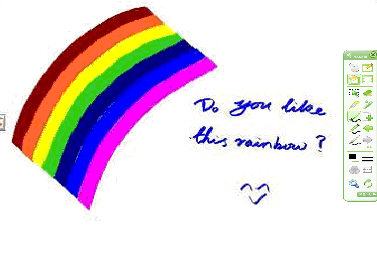 Do you like
this rainbow?